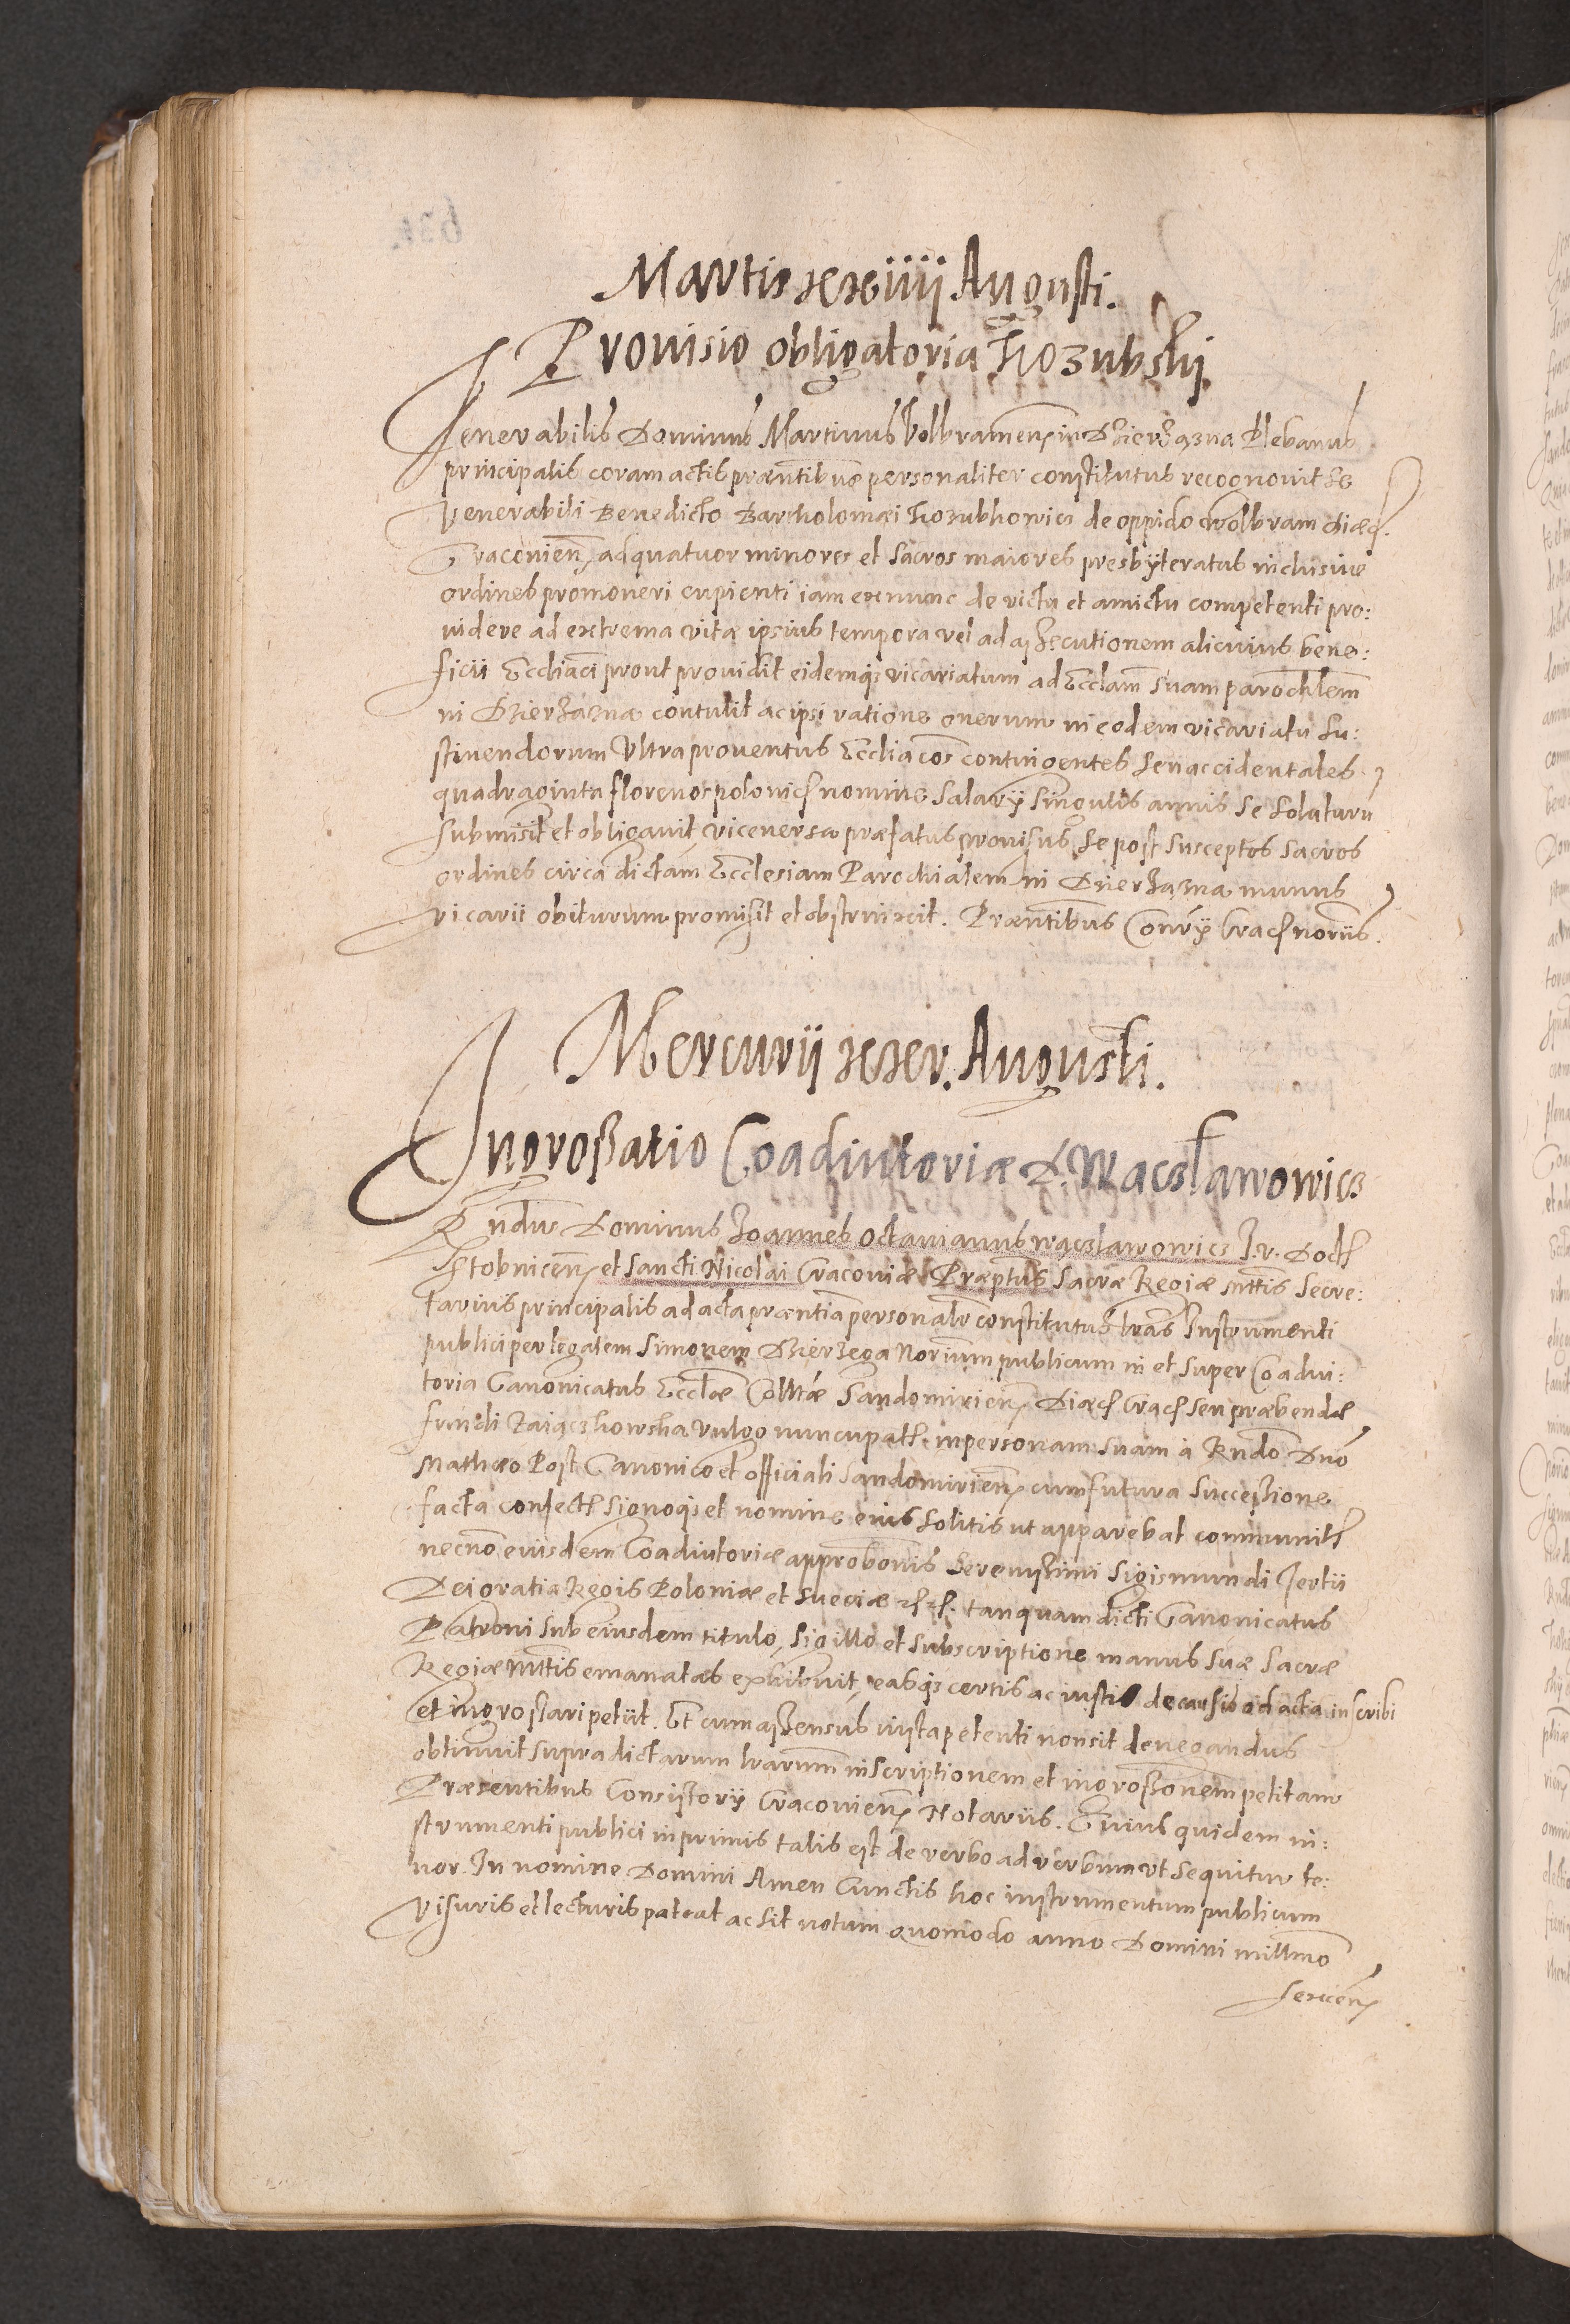 Martis xxiiij Augusti.
Prouisio obligatoria Kozubskij
Venerabilis Dominus Martinus Volbramen̄ in Dzierzązna Plebanus
principalis coram actis præntibus personaliter constitutus recognouit se
Venerabili Benedicto Bartholomæi Kozubkowicz de oppido Wolbram diæc.
Cracouien̄ ad quatuor minores et sacros maiores presbÿteratus inclusiue
ordines promoueri cupienti iam ex nunc de victu et amictu competenti pro:
uidere ad extrema vitæ ipsius tempora vel ad aßecutionem alicuius bene:
ficii Eccliaci prout prouidit eidemqȝ vicariatum ad Ecclam̄ suam parochlem̄
in Dzierzaznæ contulit ac ipsi ratione onerum in eodem vicariatu su:
stinendorum Vltra prouentus Eccliacos contingentes seu accidentales
quadraginta florenos polonicꝭ nomine Salarÿ Singulis annis se soluturū
submisit et obligauit, viceuersa præfatus prouisus se post susceptos sacros
ordines circa dictam Ecclesiam Parochialem in Dzierzazna munus
vicarii obiturum promisit et obstrinxit. Præntibus Conrÿ Cracꝭ noriis.
Mercurii xxv. Augusti.
Ingroßatio Coadiutoriæ D. Wacsławowicz
Rndus Dominus Ioannes Octauianus Waczlawowicz I.V. Doctꝭ
Stobnicen̄ et Sancti Nicolai Cracouiæ Præptus Sacræ Regiæ Mttis Secre:
tarius principalis ad acta præntia personalr constitutus lras Instrumenti
publici per legalem Simonem Dzierzega Norium publicum in et super Coadiu:
toria Canonicatus Ecclæ Colltæ Sandomirien̄ Diæcꝭ Cracꝭ seu præbendæ
fundi Zaiączkowska vulgo nuncupatꝭ in personam suam à Rndo Dno
Mathæo Post Canonico et officiali Sandomirien̄ cum futura successione
facta confectꝭ signoqȝ et nomine eius solitis ut apparebat communitꝭ
necnō eiusdem Coadiutoriæ approbōnis Serenissimi Sigismundi Tertii
Dei gratia Regis Poloniæ et Sueciæ ꝛcꝭ ꝛcꝭ. tanquam dicti Canonicatus
Patroni sub eiusdem titulo, sigillo et subscriptione manus suæ Sacræ
Regiæ Mttis emanatas exhibuit, easqȝ certis ac iustis de causis ad acta inscribi
et ingroßari petiit. Et cum aßensus iusta petenti non sit denegandus
obtinuit supradictarum lrarum inscriptionem et ingroßonem petitam
Præsentibus Consistorÿ Cracouien̄ Notariis. Cuius quidem in:
strumenti publici in primis talis est de verbo ad verbum vt sequitur te:
nor. In nomine Domini Amen Cunctis hoc instrumentum publicum
visuris et lecturis pateat ac sit notum quomodo anno Domini millmo
sexcen̄